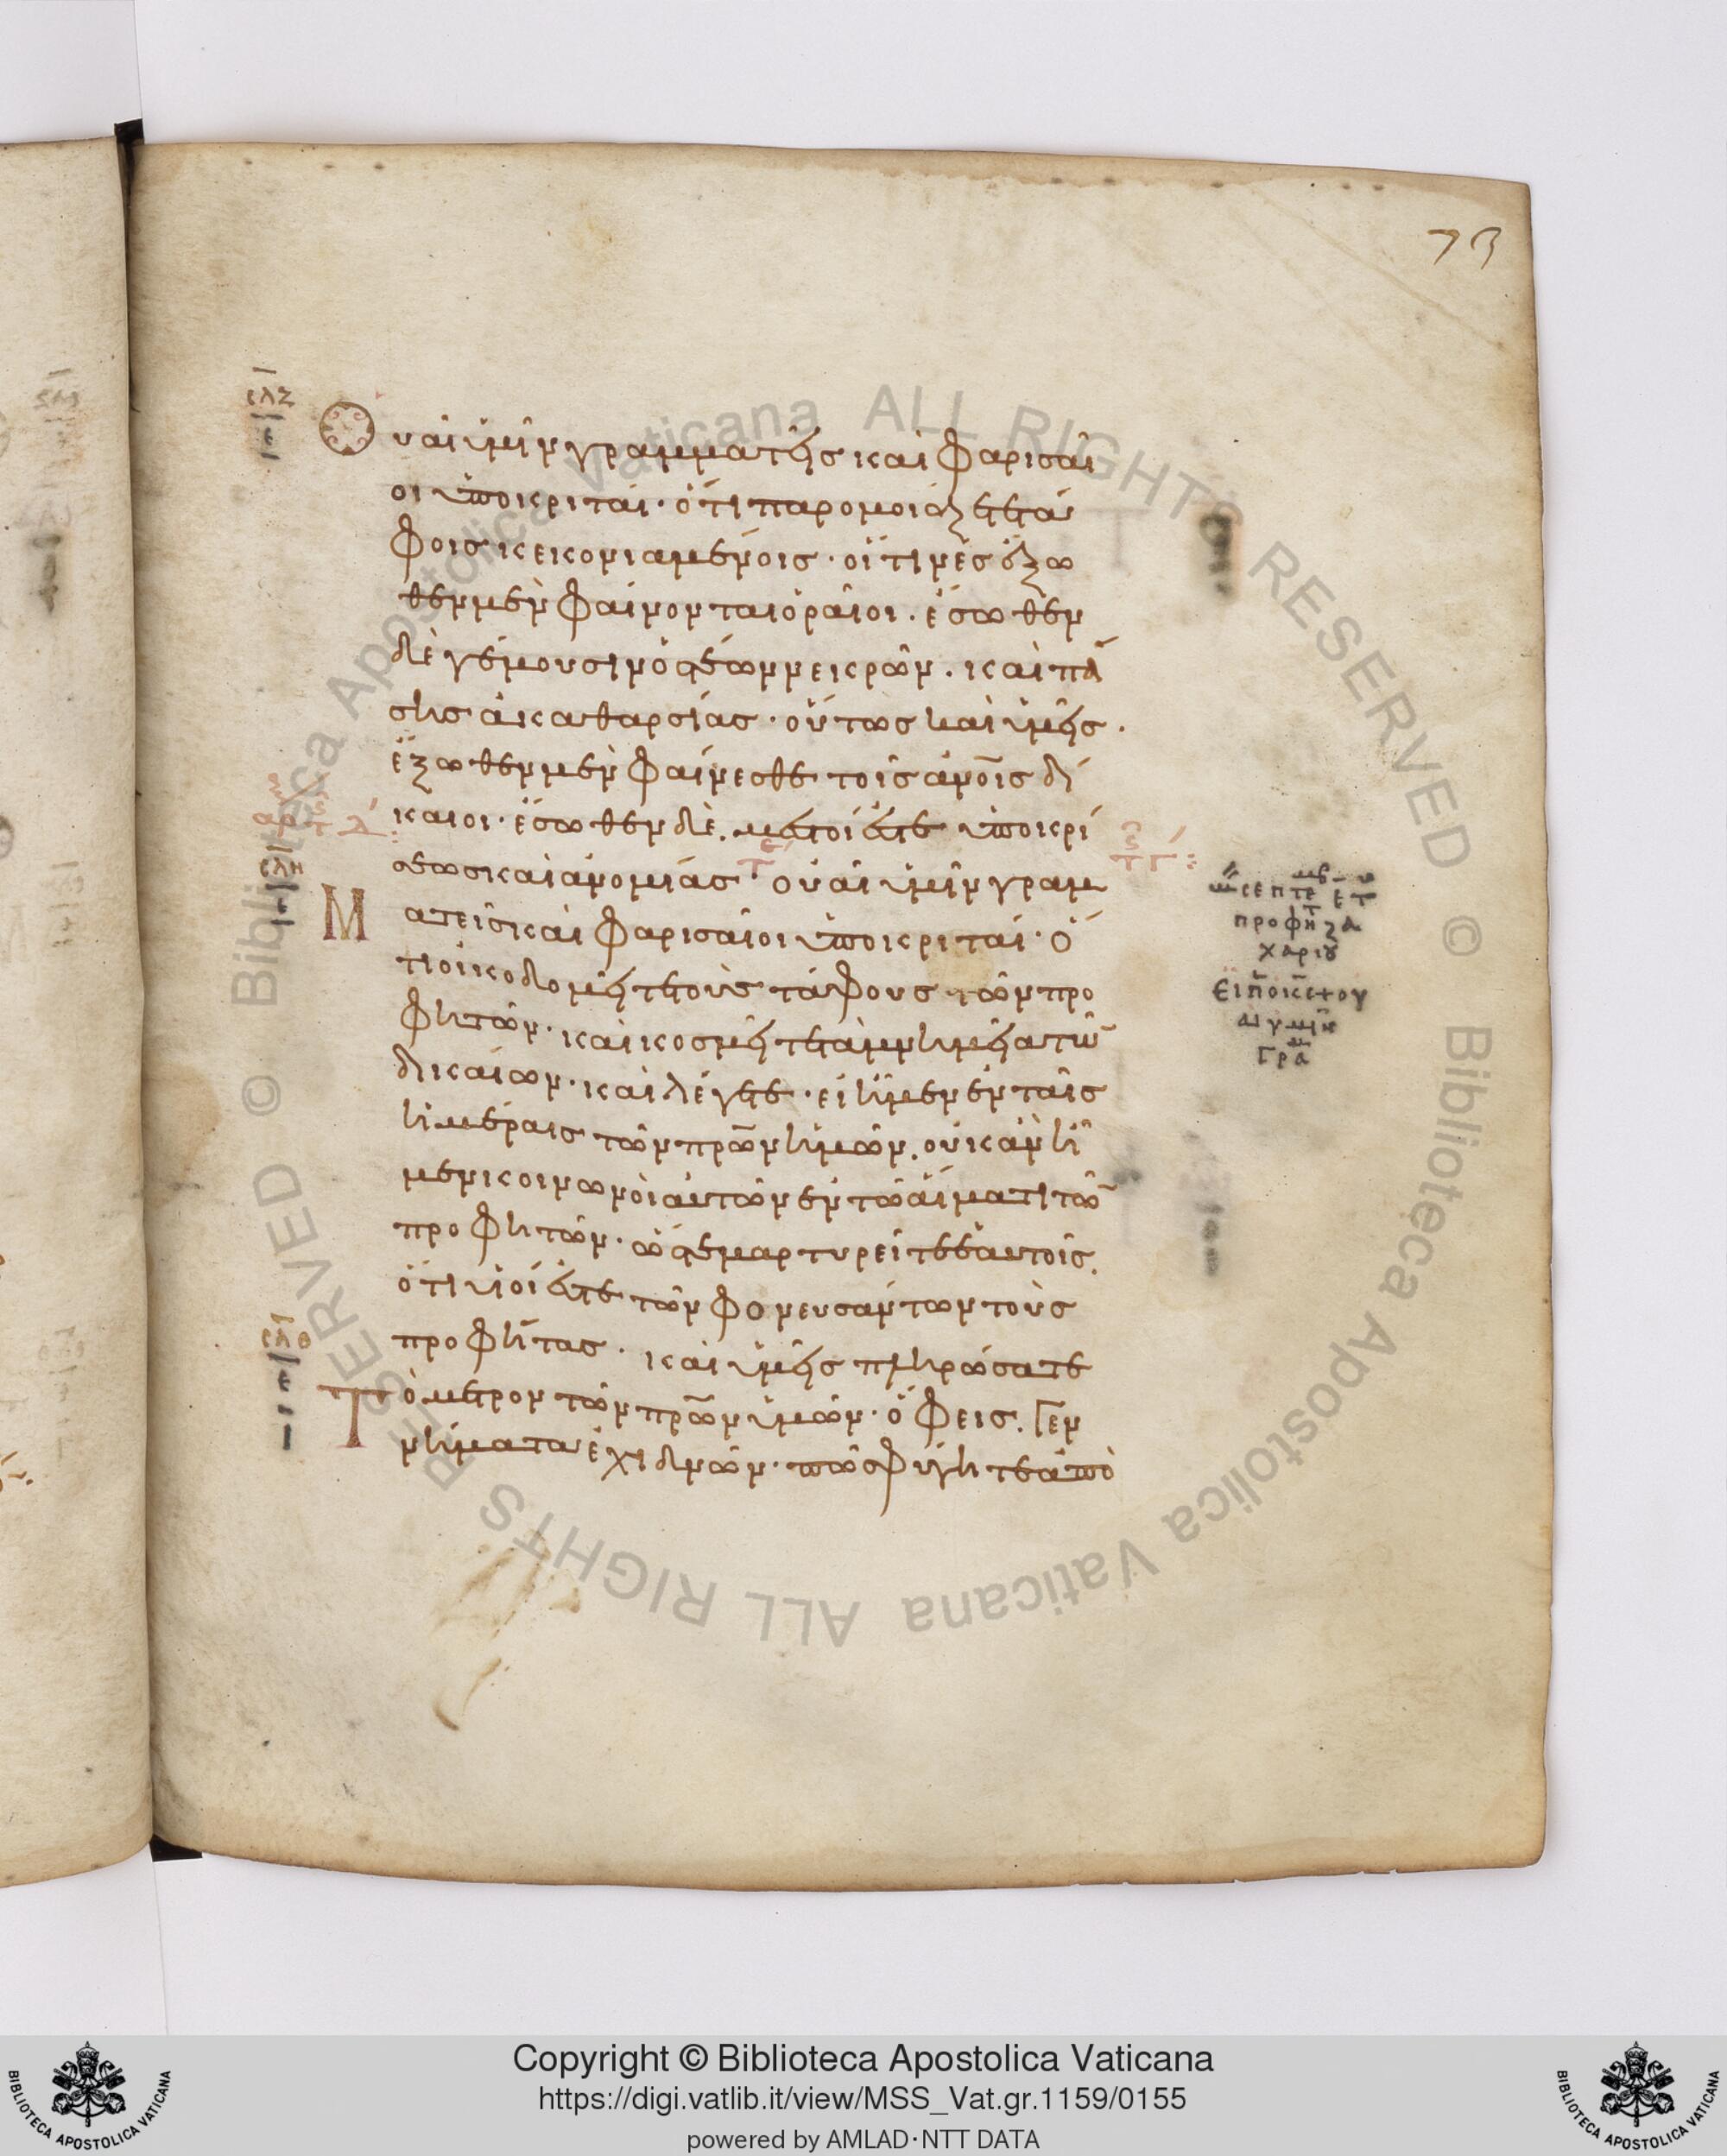 73
Οὐαὶ ὑμῖν γραμματεῖς καὶ Φαρισαῖ
οι ὑποκριταί· ὅτι παρομοιάζετε τά
φοις κεκονιαμένοις· οἵτινες ἔξω
θεν μὲν φαίνονται ὁραῖοι· ἔσωθεν
δὲ γέμουσιν ὀστέων νεικρῶν· καὶ πά
σης ἀκαθαρσίας· οὕτως καὶ ὑμεῖς·
ἔξωθεν μὲν φαίνεσθε τοῖς ἀνοῖς δί
καιοι· ἔσωθεν δὲ. μεστοί ἐστε ὑποκρί
σεως καὶ ἀνομίας· οὐαὶ ὑμῖν γραμ
Ματεῖς καὶ Φαρισαῖοι ὑποκριταί· ὅ
τι οἰκοδομεῖτε τοὺς τάφους τῶν προ
φητῶν· καὶ κοσμεῖτε τὰ μνημεῖα τῶ
δικαίων· καὶ λέγετε· εἰ ἤμεν ἐν ταῖς
ἡμέραις τῶν πρων ἡμῶν. οὐκ ἂν ἦ
μεν κοινωνοὶ αὐτῶν ἐν τῷ αἵματι τῶ
προφητῶν· ὥστε μαρτυρεῖτε ἑαυτοῖς.
ὅτι υἱοί ἐστε τῶν φονευσάντων τοὺς
προφήτας· καὶ ὑμεῖς πληρώσατε
Τὸ μέτρον τῶν πρων ὑμῶν· ὄφεις. Γεν
νήματα ἐχιδνῶν· πῶς φύγητε ἀπὸ
σλζ
σλη
σλθ
προφη ζα
χαριου
Copyright © Biblioteca Apostolica Vaticana
https://digi.vatlib.it/view/MSS_Vat.gr.1159/0155
powered by AMLAD·NTT DATA
BIBLIOTECA APOSTOLICA VATICANA
BIBLIOTECA APOSTOLICA VATICANA
© Biblioteca Apostolica Vaticana ALL RIGHTS RESERVED © Biblioteca Apostolica Vaticana ALL RIGHTS RESERVED